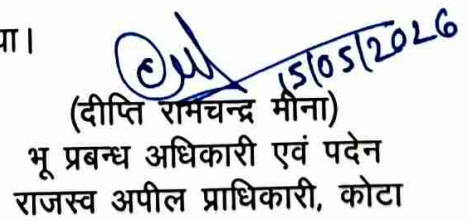 या।
15/05/2026
(दीप्ति रामचन्द्र मीना)
भू प्रबन्ध अधिकारी एवं पदेन
राजस्व अपील प्राधिकारी, कोटा